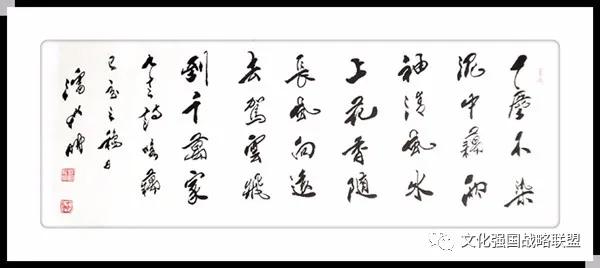 塵不染
泥中藕兩
袖清風水
上花香隨
長風向遠
去駕雲飛
到千萬家
言詩咏藕
己亥之穐日
潘
文化强国战略联盟